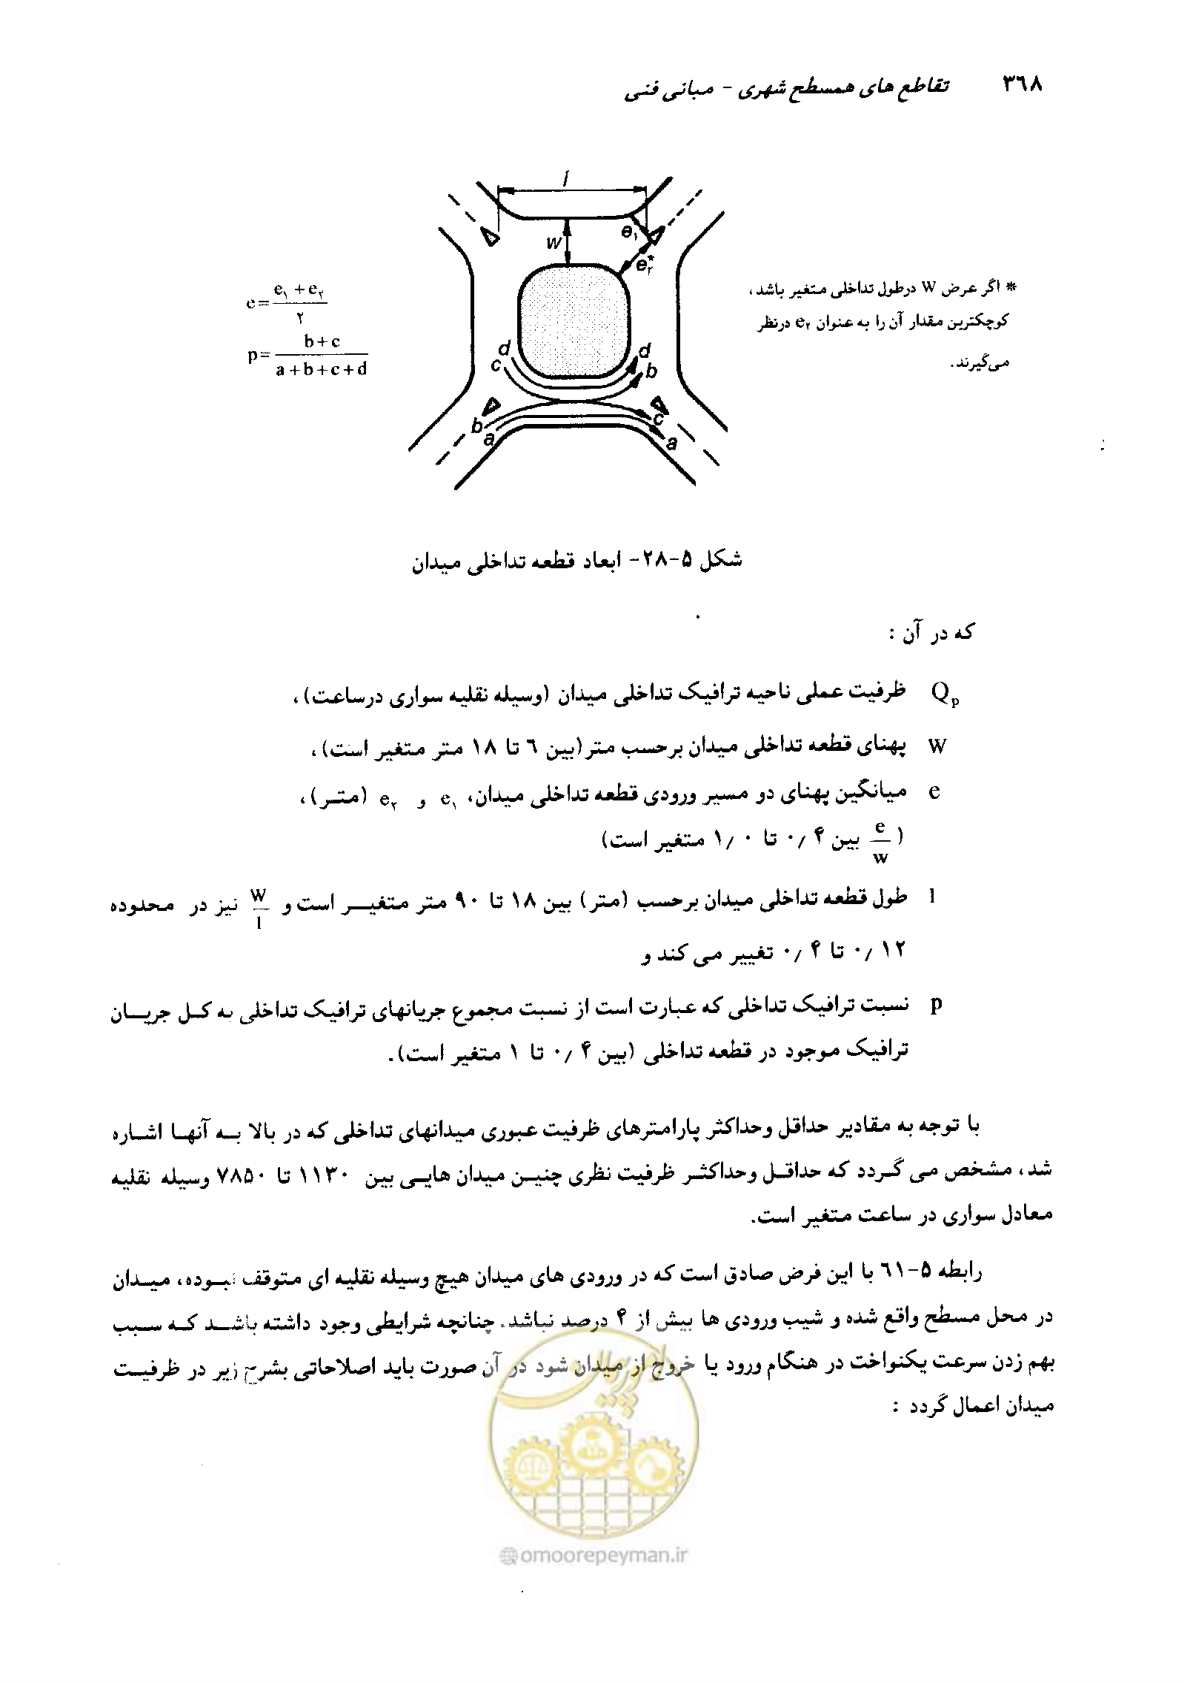 ۳٦۸ تقاطع های همسطح شهری - مبانی فنی
l
w
e۱
e۲*
d
c
d
b
b
a
c
a
e = (e۱ + e۲) / ۲
p = (b + c) / (a + b + c + d)
* اگر عرض W درطول تداخلی متغیر باشد،
کوچکترین مقدار آن را به عنوان e۲ درنظر
می‌گیرند.
شکل ۵-۲۸- ابعاد قطعه تداخلی میدان
که در آن :
Qp ظرفیت عملی ناحیه ترافیک تداخلی میدان (وسیله نقلیه سواری درساعت)،
W پهنای قطعه تداخلی میدان برحسب متر(بین ٦ تا ۱۸ متر متغیر است)،
e میانگین پهنای دو مسیر ورودی قطعه تداخلی میدان، e۱ و e۲ (متـر)،
( e/w بین ۰/۴ تا ۱/۰ متغیر است)
l طول قطعه تداخلی میدان برحسب (متر) بین ۱۸ تا ۹۰ متر متغیـــر است و W/l نیز در محدوده
۰/۱۲ تا ۰/۴ تغییر می کند و
p نسبت ترافیک تداخلی که عبارت است از نسبت مجموع جریانهای ترافیک تداخلی به کـل جریـــان
ترافیک موجود در قطعه تداخلی (بین ۰/۴ تا ۱ متغیر است).
با توجه به مقادیر حداقل وحداکثر پارامترهای ظرفیت عبوری میدانهای تداخلی که در بالا بـه آنهـا اشـاره
شد، مشخص می گـردد که حداقـل وحداکثـر ظرفیت نظری چنیـن میدان هایـی بین ۱۱۳۰ تا ۷۸۵۰ وسیله نقلیه
معادل سواری در ساعت متغیر است.
رابطه ۵-٦۱ با این فرض صادق است که در ورودی های میدان هیچ وسیله نقلیه ای متوقف نبـوده، میـدان
در محل مسطح واقع شده و شیب ورودی ها بیش از ۴ درصد نباشد. چنانچه شرایطی وجود داشته باشـد کـه سـبب
بهم زدن سرعت یکنواخت در هنگام ورود یا خروج از میدان شود در آن صورت باید اصلاحاتی بشرح زیر در ظرفیـت
میدان اعمال گردد :
امور پیمان
@omoorepeyman.ir